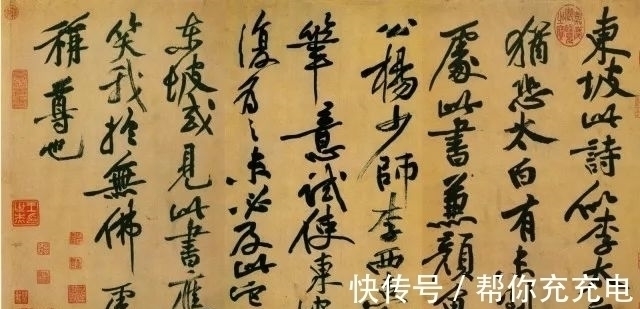 東坡此詩似李太
猶恐太白有未
處此書兼顏
公楊少師李西
筆意試使東坡
復為之未必及此它
東坡或見此書應
笑我於無佛處
稱尊也
快传号 / 帮你充充电